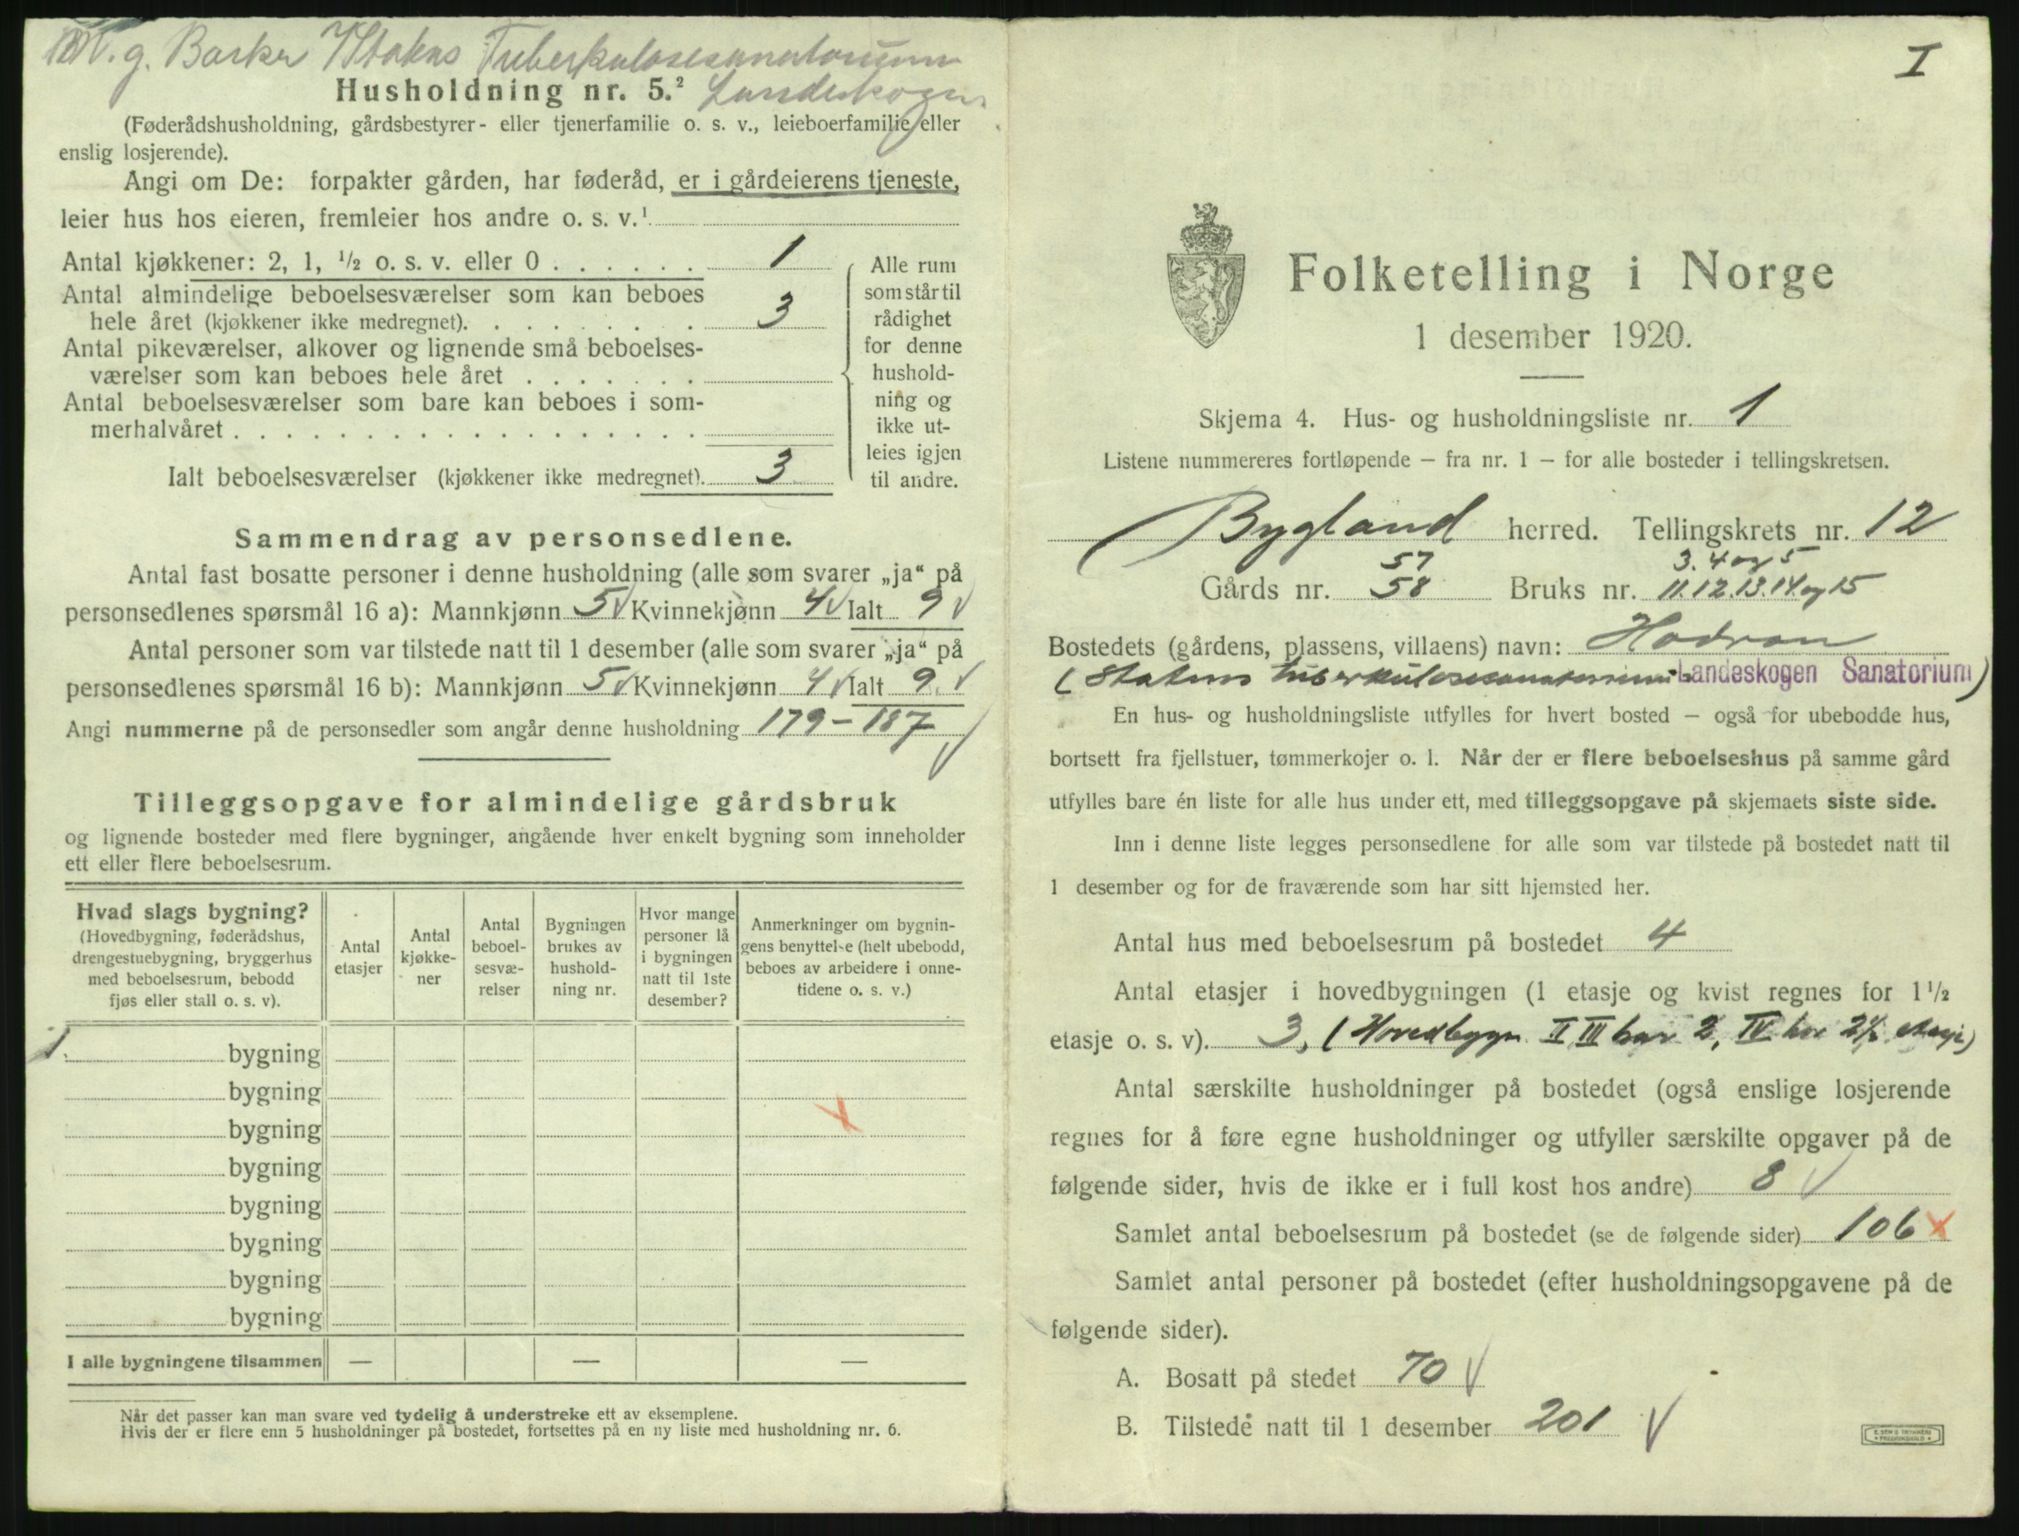 g. Barker Statens Tuberkulosesanatorium
Husholdning nr. 5.² Landeskogen
(Føderådshusholdning, gårdsbestyrer- eller tjenerfamilie o. s. v., leieboerfamilie eller
enslig losjerende).
Angi om De: forpakter gården, har føderåd, er i gårdeierens tjeneste,
leier hus hos eieren, fremleier hos andre o. s. v.¹
Antal kjøkkener: 2, 1, ½ o. s. v. eller 0 . . . . . . 1
Antal almindelige beboelsesværelser som kan beboes
hele året (kjøkkener ikke medregnet). . . . . . . . 3
Antal pikeværelser, alkover og lignende små beboelses-
værelser som kan beboes hele året . . . . . . .
Antal beboelsesværelser som bare kan beboes i som-
merhalvåret . . . . . . . . . . . . . . . . .
Ialt beboelsesværelser (kjøkkener ikke medregnet). 3
Alle rum
som står til
rådighet
for denne
hushold-
ning og
ikke ut-
leies igjen
til andre.
Sammendrag av personsedlene.
Antal fast bosatte personer i denne husholdning (alle som svarer „ja“ på
personsedlenes spørsmål 16 a): Mannkjønn 5 √ Kvinnekjønn 4 √ Ialt 9 √
Antal personer som var tilstede natt til 1 desember (alle som svarer „ja“ på
personsedlenes spørsmål 16 b): Mannkjønn 5 √ Kvinnekjønn 4 √ Ialt 9 √
Angi nummerne på de personsedler som angår denne husholdning 179 - 187 √
Tilleggsopgave for almindelige gårdsbruk
og lignende bosteder med flere bygninger, angående hver enkelt bygning som inneholder
ett eller flere beboelsesrum.
Hvad slags bygning?
(Hovedbygning, føderådshus,
drengestuebygning, bryggerhus
med beboelsesrum, bebodd
fjøs eller stall o. s. v).
Antal
etasjer
Antal
kjøkke-
ner
Antal
beboel-
sesvæ-
relser
Bygningen
brukes av
hushold-
ning nr.
Hvor mange
personer lå
i bygningen
natt til 1ste
desember?
Anmerkninger om bygnin-
gens benyttelse (helt ubebodd,
beboes av arbeidere i onne-
tidene o. s. v.)
1. bygning
bygning
bygning
bygning
bygning
bygning
bygning
bygning
I alle bygningene tilsammen — — —
Når det passer kan man svare ved tydelig å understreke ett av eksemplene.
Hvis der er flere enn 5 husholdninger på bostedet, fortsettes på en ny liste med husholdning nr. 6.
I
Folketelling i Norge
1 desember 1920.
Skjema 4. Hus- og husholdningsliste nr. 1
Listene nummereres fortløpende – fra nr. 1 – for alle bosteder i tellingskretsen.
Bygland herred. Tellingskrets nr. 12
57 3. 4 og 5
Gårds nr. 58 Bruks nr. 11. 12. 13. 14 og 15
Bostedets (gårdens, plassens, villaens) navn: Hodnan
(Statens tuberkulosesanatorium Landeskogen Sanatorium)
En hus- og husholdningsliste utfylles for hvert bosted – også for ubebodde hus,
bortsett fra fjellstuer, tømmerkojer o. l. Når der er flere beboelseshus på samme gård
utfylles bare én liste for alle hus under ett, med tilleggsopgave på skjemaets siste side.
Inn i denne liste legges personsedlene for alle som var tilstede på bostedet natt til
1 desember og for de fraværende som har sitt hjemsted her.
Antal hus med beboelsesrum på bostedet 4
Antal etasjer i hovedbygningen (1 etasje og kvist regnes for 1½
etasje o. s. v). 3, (Hovedbygn. II III har 2, IV har 2½ etasje)
Antal særskilte husholdninger på bostedet (også enslige losjerende
regnes for å føre egne husholdninger og utfyller særskilte opgaver på de
følgende sider, hvis de ikke er i full kost hos andre) 8 √
Samlet antal beboelsesrum på bostedet (se de følgende sider) 106 x
Samlet antal personer på bostedet (efter husholdningsopgavene på de
følgende sider).
A. Bosatt på stedet 70 √
B. Tilstede natt til 1 desember 201 √